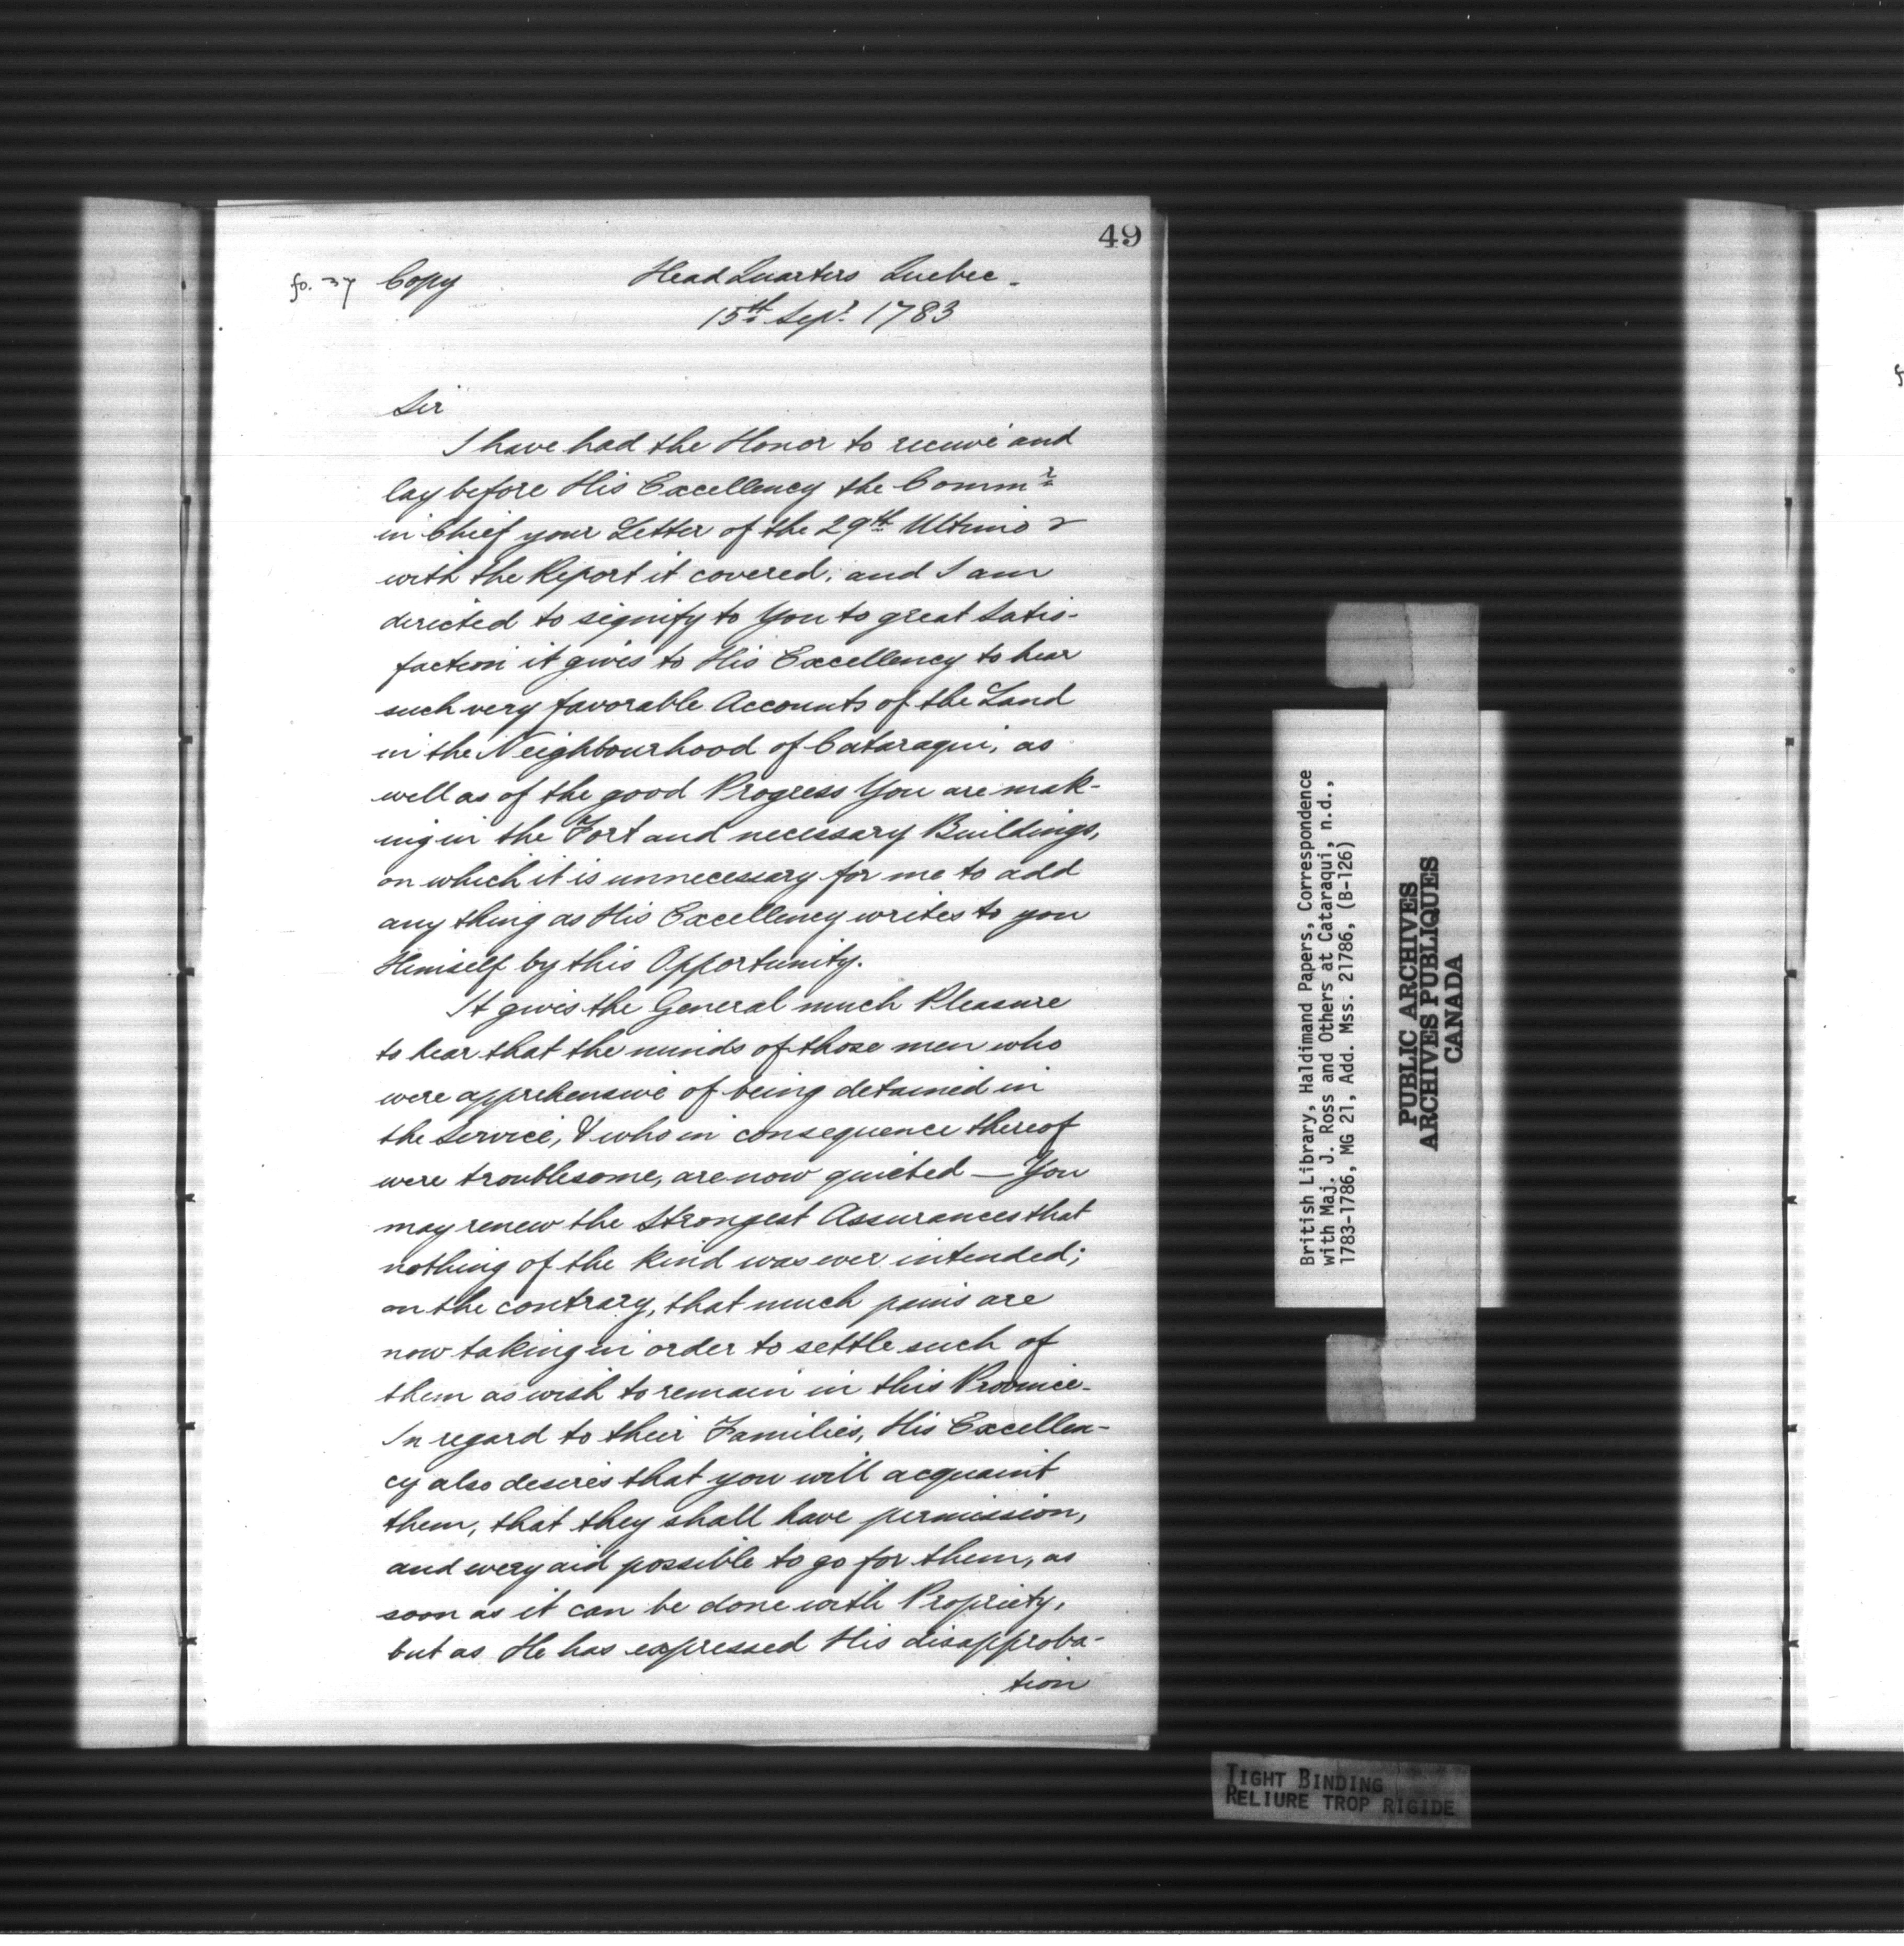 49
fo. 37 Copy Head Quarters Quebec.
15th Sepr. 1783
Sir
I have had the Honor to receive and
lay before His Excellency the Commr.
in Chief your Letter of the 29th Ultimo &
with the Report it covered; and I am
directed to signify to You to great Satis-
faction it gives to His Excellency to hear
such very favorable Accounts of the Land
in the Neighbourhood of Cataraqui, as
well as of the good Progress You are mak-
ing in the Fort and necessary Buildings,
on which it is unnecessary for me to add
any thing as His Excellency writes to you
Himself by this Opportunity.
It gives the General much Pleasure
to hear that the minds of those men who
were apprehensive of being detained in
the Service, & who in consequence thereof
were troublesome, are now quieted — You
may renew the Strongest Assurances that
nothing of the kind was ever intended;
on the contrary, that much pains are
now taking in order to settle such of
them as wish to remain in this Province.
In regard to their Families, His Excellen-
cy also desires that you will acquaint
them, that they shall have permission,
and every aid possible to go for them, as
soon as it can be done with Propriety,
but as He has expressed His disapproba-
tion
British Library, Haldimand Papers, Correspondence
with Maj. J. Ross and Others at Cataraqui, n.d.,
1783-1786, MG 21, Add. Mss. 21786, (B-126)
PUBLIC ARCHIVES
ARCHIVES PUBLIQUES
CANADA
TIGHT BINDING
RELIURE TROP RIGIDE